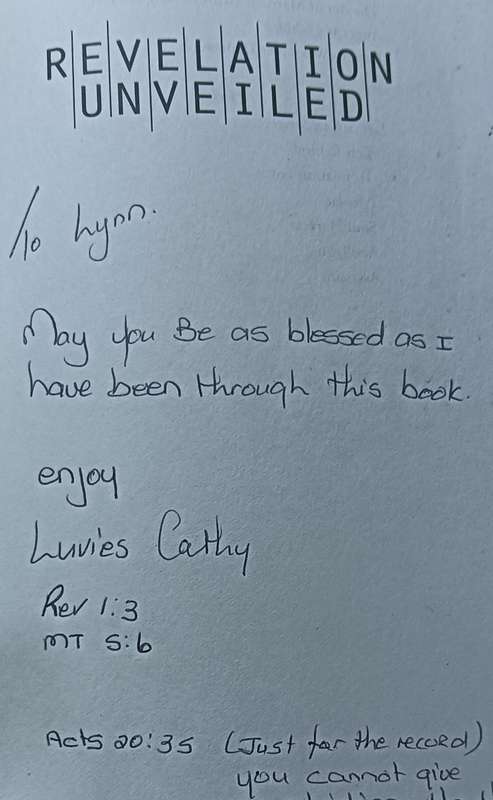 REVELATION
UNVEILED
To Lynn.
May you Be as blessed as I
have been through this book.
enjoy
Luvies Cathy
Rev 1:3
MT 5:6
Acts 20:35 (Just for the record)
you cannot give